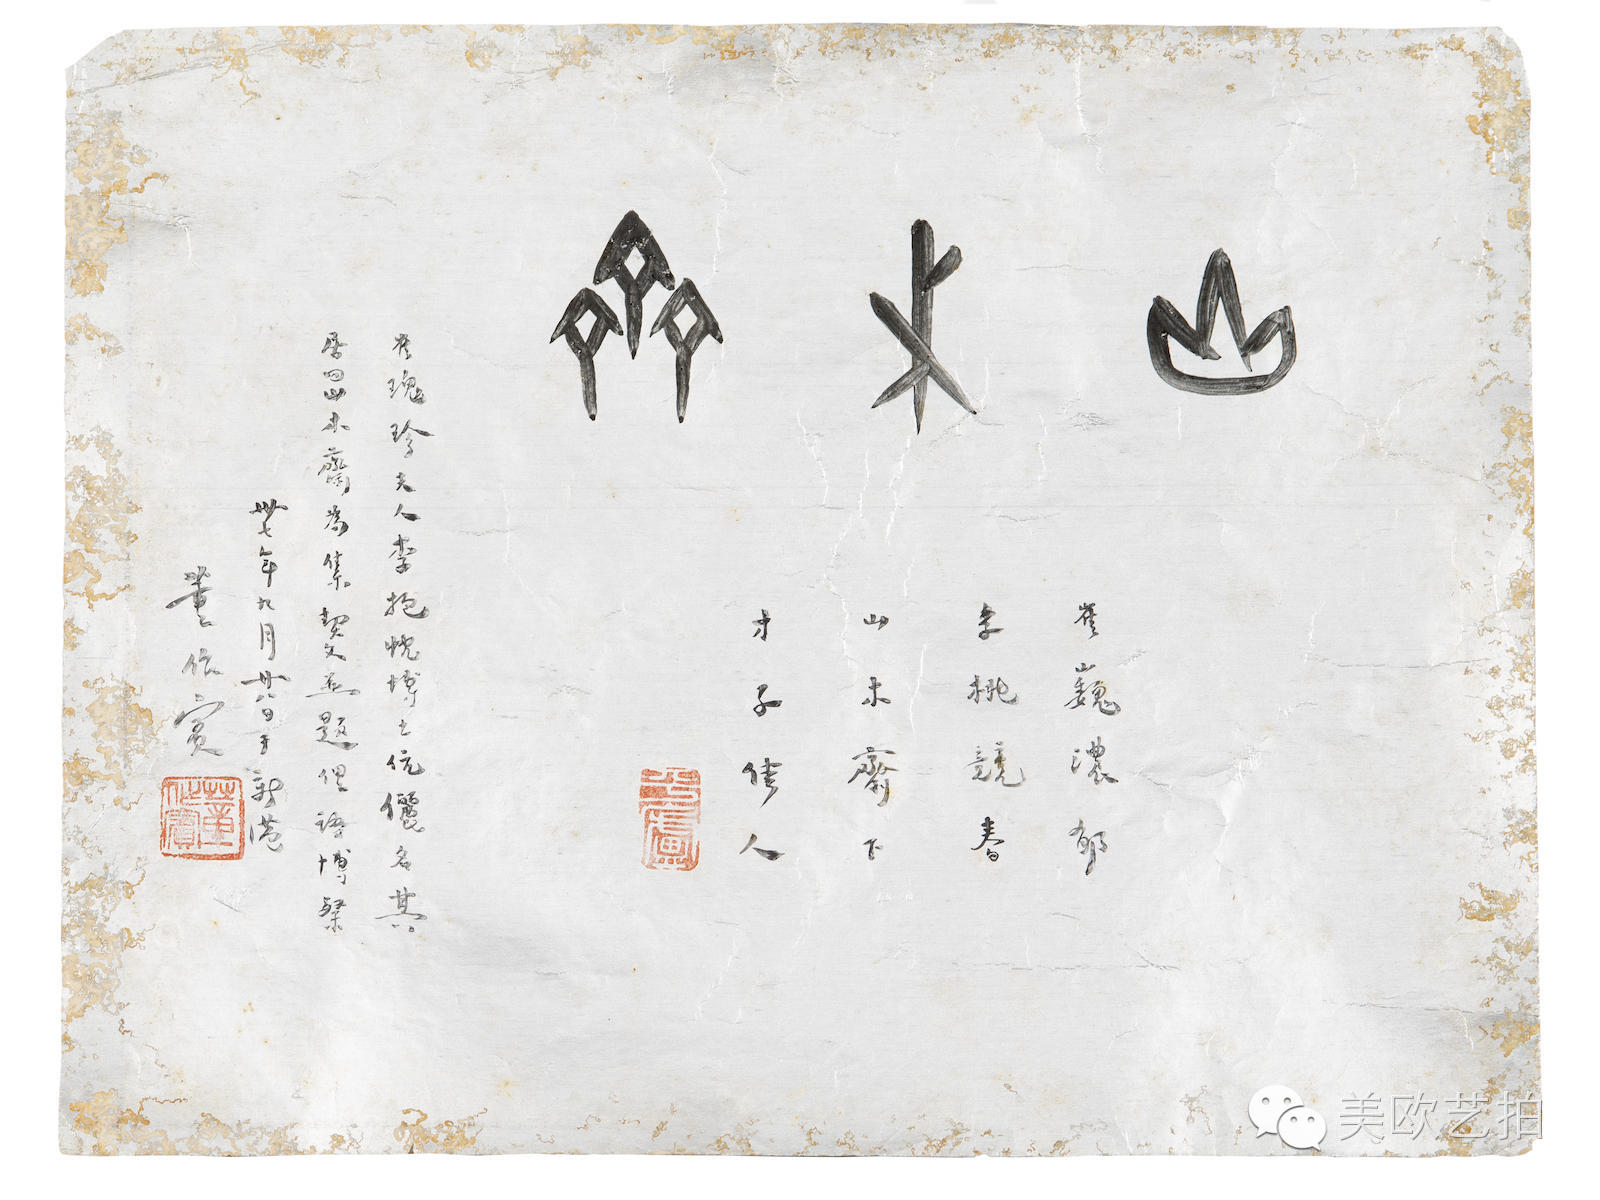 山木齋
崔巍濃郁
李桃競春
山木齋下
才子佳人
平廬
崔瑰珍夫人李抱忱博士伉儷名其
居曰山木齋為集契文並題俚語博粲
卅七年九月廿八日于新港
董作賓
董作賓
美欧艺拍